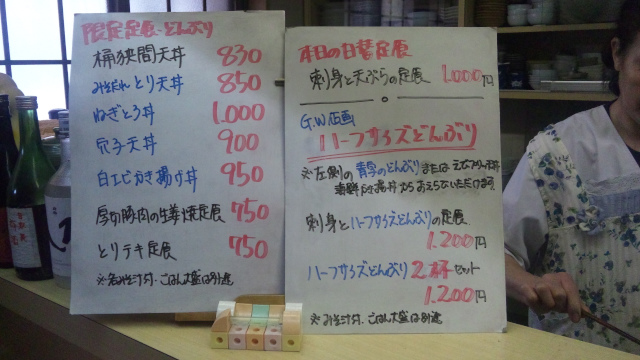 限定定食・どんぶり
桶狭間天丼 830
みだれとり天丼 850
ねぎとろ丼 1,000
穴子天丼 900
白エビかき揚げ丼 950
厚切豚肉の生姜焼定食 750
とりテキ定食 750
※お味噌汁、ごはん大盛は別途
本日の日替定食
刺身と天ぷらの定食 1,000円
G.W企画
ハーフサイズどんぶり
※左側の青字のどんぶりまたはえびフライ丼
海鮮かき揚丼からおえらびいただけます
刺身とハーフサイズどんぶりの定食
1,200円
ハーフサイズどんぶり2杯セット
1,200円
※みそ汁、ごはん大盛は別途